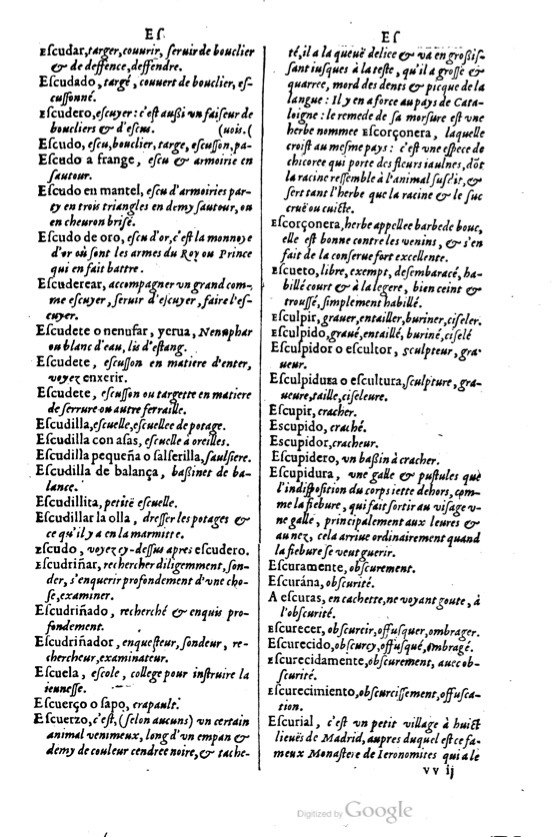 ES
Eſcudar, targer, couurir, ſeruir de bouclier
& de deffence, deffendre.
Eſcudado, targé, couuert de bouclier, eſ-
cuſſonné.
Eſcudero, eſcuyer : c'eſt auſſi vn faiſeur de
boucliers & d'eſcus. (uois. (
Eſcudo, eſcu, bouclier, targe, eſcuſſon, pa-
Eſcudo a frange, eſcu & armoirie en
ſautour.
Eſcudo en mantel, eſcu d'armoiries par-
ty en trois triangles en demy ſautour, ou
en cheuron briſé.
Eſcudo de oro, eſcu d'or, c'eſt la monnoye
d'or où ſont les armes du Roy ou Prince
qui en fait battre.
Eſcuderear, accompagner vn grand com-
me eſcuyer, ſeruir d'eſcuyer, faire l'eſ-
cuyer.
Eſcudete o nenufar, yerua, Nenuphar
ou blanc d'eau, lis d'eſtang.
Eſcudete, eſcuſſon en matiere d'enter,
voyez enxerir.
Eſcudete, eſcuſſon ou targette en matiere
de ſerrure ou autre ferraille.
Eſcudilla, eſcuelle, eſcuellee de potage.
Eſcudilla con aſas, eſcuelle à oreilles.
Eſcudilla pequeña o ſalſerilla, ſaulſiere.
Eſcudilla de balança, baſſinet de ba-
lance.
Eſcudillita, petite eſcuelle.
Eſcudillar la olla, dreſſer les potages &
ce qu'il y a en la marmitte.
Eſcudo, voyez cy-deſſus apres eſcudero.
Eſcudriñar, rechercher diligemment, ſon-
der, s'enquerir profondement d'vne cho-
ſe, examiner.
Eſcudriñado, recherché & enquis pro-
fondement.
Eſcudriñador, enqueſteur, ſondeur, re-
chercheur, examinateur.
Eſcuela, eſcole, college pour inſtruire la
ieuneſſe.
Eſcuerço o ſapo, crapault.
Eſcuerzo, c'eſt, (ſelon aucuns) vn certain
animal venimeux, long d'vn empan &
demy de couleur cendree noire, & tache-
ES
té, il a la queuë delice & va en groſſiſ-
ſant iuſques à la teſte, qu'il a groſſe &
quarree, mord des dents & picque de la
langue : Il y en a force au pays de Cata-
loigne : le remede de ſa morſure eſt vne
herbe nommee Eſcorçonera, laquelle
croiſt au meſme pays : c'eſt vne eſpece de
chicoree qui porte des fleurs iaulnes, dōt
la racine reſſemble à l'animal ſuſdit, &
ſert tant l'herbe que la racine & le ſuc
cruë ou cuicte.
Eſcorçonera, herbe appellee barbe de bouc,
elle eſt bonne contre les venins, & s'en
fait de la conſerue fort excellente.
Eſcueto, libre, exempt, deſembaracé, ha-
billé court & à la legere, bien ceint &
trouſſé, ſimplement habillé.
Eſculpir, grauer, entailler, buriner, ciſeler.
Eſculpido, graué, entaillé, buriné, ciſelé
Eſculpidor o eſcultor, ſculpteur, gra-
ueur.
Eſculpidura o eſcultura, ſculpture, gra-
ueure, taille, ciſeleure.
Eſcupir, cracher.
Escupido, craché.
Escupidor, cracheur.
Eſcupidero, vn baſſin à cracher.
Eſcupidura, vne galle & puſtules que
l'indiſpoſition du corps iette dehors, com-
me la fiebure, qui fait ſortir au viſage v-
ne galle, principalement aux leures &
au nez, cela arriue ordinairement quand
la fiebure ſe veut guerir.
Eſcuramente, obſcurement.
Eſcurána, obſcurité.
A eſcuras, en cachette, ne voyant goute, à
l'obſcurité.
Eſcurecer, obſcurcir, offuſquer, ombrager.
Eſcurecido, obſcurcy, offuſqué, ombragé.
Eſcurecidamente, obſcurement, auec ob-
ſcurité.
Eſcurecimiento, obſcurciſſement, offuſca-
tion.
Eſcurial, c'eſt vn petit village à huict
lieuës de Madrid, aupres duquel eſt ce fa-
meux Monaſtere de Ieronomites qui a le
vv ij
Digitized by Google